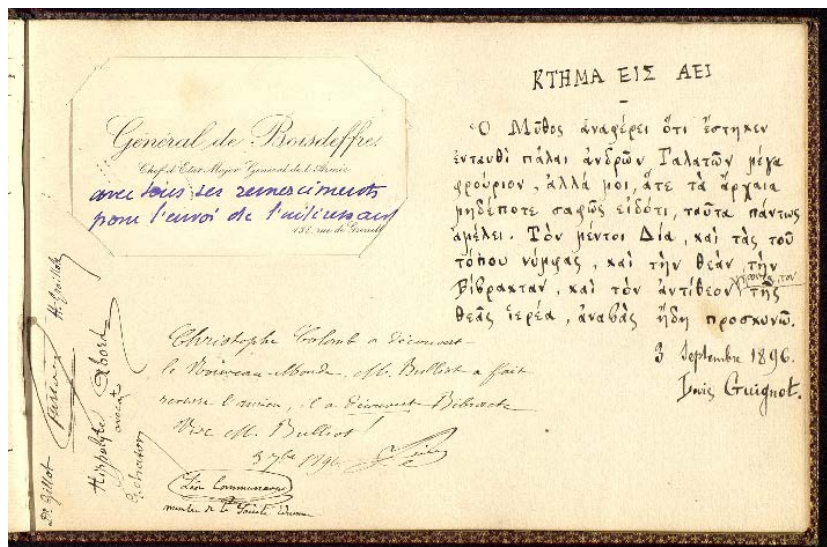 Général de Boisdeffre
Chef d'Etat-Major Général de l'Armée
avec tous ses remerciments
pour l'envoi de l'intéressant
138, rue de Grenelle
ΚΤΗΜΑ ΕΙΣ ΑΕΙ
Ὁ Μῦθος ἀναφέρει ὅτι ἕστηκεν
ἐνταυθὶ πάλαι ἀνδρῶν Γαλατῶν μέγα
φρούριον, ἀλλά μοι, ἅτε τὰ ἀρχαῖα
μηδέποτε σαφῶς εἰδότι, ταῦτα πάντως
ἀμέλει. Τὸν μέντοι Δία, καὶ τὰς τοῦ
τόπου νύμφας, καὶ τὴν θεὰν τὴν
Βίβρακταν, καὶ τὸν ἀντίθεον τῆς
θεᾶς ἱερέα, ἀναβὰς ἤδη προσκυνῶ.
3 Septembre 1896.
Louis Guignot.
Christophe Colomb a découvert
le Nouveau-Monde. M. Bulliot a fait
l'union, il a découvert Bibracte
Vive M. Bulliot!
3 7bre 1896
Léon
membre de la Société Eduenne
H. Guillot
Hippolyte Abord
avocat
Dr Gillot